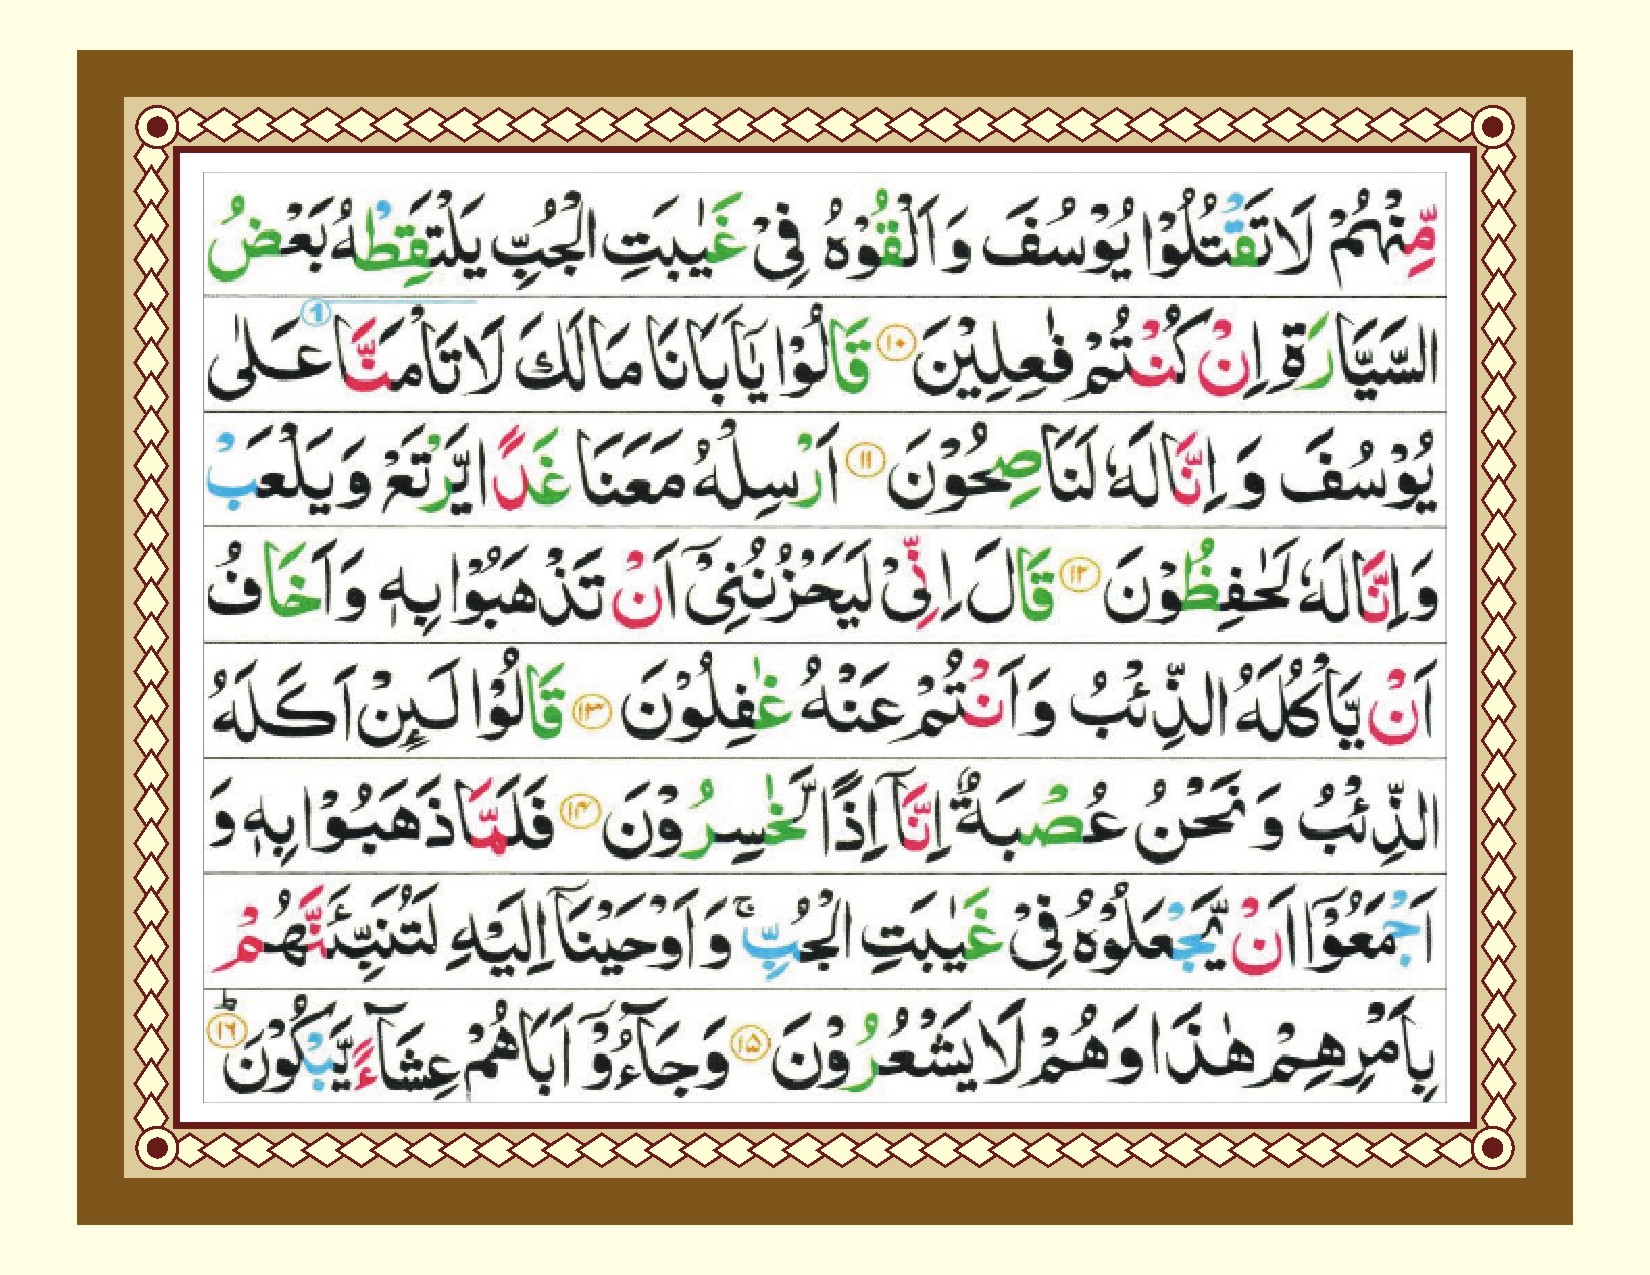 مِّنْهُمْ لَا تَقْتُلُوْا يُوْسُفَ وَ اَلْقُوْهُ فِىْ غَيٰبَتِ الْجُبِّ يَلْتَقِطْهُ بَعْضُ
السَّيَّارَةِ اِنْ كُنْتُمْ فٰعِلِيْنَ ۱۰ قَالُوْا يٰۤاَبَانَا مَا لَكَ لَا تَاْمَنَّا عَلٰى
يُوْسُفَ وَ اِنَّا لَهٗ لَنَاصِحُوْنَ ۱۱ اَرْسِلْهُ مَعَنَا غَدًا يَّرْتَعْ وَ يَلْعَبْ
وَ اِنَّا لَهٗ لَحٰفِظُوْنَ ۱۲ قَالَ اِنِّىْ لَيَحْزُنُنِىْۤ اَنْ تَذْهَبُوْا بِهٖ وَ اَخَافُ
اَنْ يَّاْكُلَهُ الذِّئْبُ وَ اَنْتُمْ عَنْهُ غٰفِلُوْنَ ۱۳ قَالُوْا لَئِنْ اَكَلَهُ
الذِّئْبُ وَ نَحْنُ عُصْبَةٌ اِنَّاۤ اِذًا لَّخٰسِرُوْنَ ۱۴ فَلَمَّا ذَهَبُوْا بِهٖ وَ
اَجْمَعُوْۤا اَنْ يَّجْعَلُوْهُ فِىْ غَيٰبَتِ الْجُبِّۚ وَ اَوْحَيْنَاۤ اِلَيْهِ لَتُنَبِّئَنَّهُمْ
بِاَمْرِهِمْ هٰذَا وَ هُمْ لَا يَشْعُرُوْنَ ۱۵ وَ جَآءُوْۤ اَبَاهُمْ عِشَآءً يَّبْكُوْنَؕ ۱۶